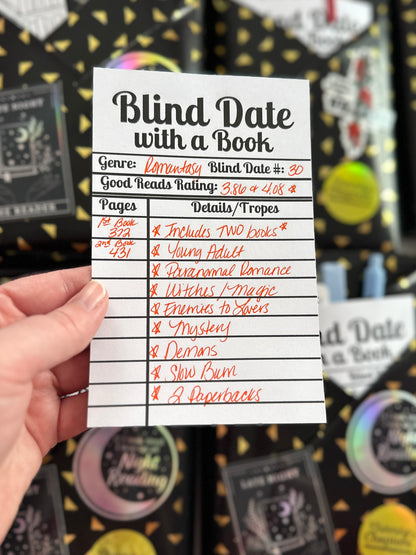 Blind Date
with a Book
Genre: Romantasy Blind Date #: 30
Good Reads Rating: 3.86 & 4.08 *
Pages Details/Tropes
1st Book
372
2nd Book
431
* Includes TWO books*
* Young Adult
* Paranormal Romance
* Witches/Magic
* Enemies to Lovers
* Mystery
* Demons
* Slow Burn
* 2 Paperbacks
Blind Date
with a Book
Blind Date
with a Book
Night
Reading
Night
Reading